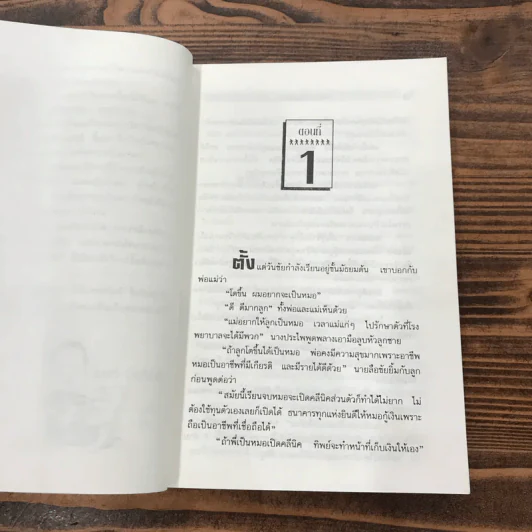 ตอนที่
1
ตั้งแต่วันชัยกำลังเรียนอยู่ชั้นมัธยมต้น เขาบอกกับ
พ่อแม่ว่า
"โตขึ้น ผมอยากจะเป็นหมอ"
"ดี ดีมากลูก" ทั้งพ่อและแม่เห็นด้วย
"แม่อยากให้ลูกเป็นหมอ เวลาแม่แก่ๆ ไปรักษาตัวที่โรง
พยาบาลจะได้มีพวก" นางประไพพูดพลางเอามือลูบหัวลูกชาย
"ถ้าลูกโตขึ้นได้เป็นหมอ พ่อคงมีความสุขมากเพราะอาชีพ
หมอเป็นอาชีพที่มีเกียรติ และมีรายได้ดีด้วย" นายลือชัยยิ้มกับลูก
ก่อนพูดต่อว่า
"สมัยนี้เรียนจบหมอจะเปิดคลีนิคส่วนตัวก็ทำได้ไม่ยาก ไม่
ต้องใช้ทุนตัวเองเลยก็เปิดได้ ธนาคารทุกแห่งยินดีให้หมอกู้เงินเพราะ
ถือเป็นอาชีพที่เชื่อถือได้"
"ถ้าพี่เป็นหมอเปิดคลีนิค ทิพย์จะทำหน้าที่เก็บเงินให้เอง"